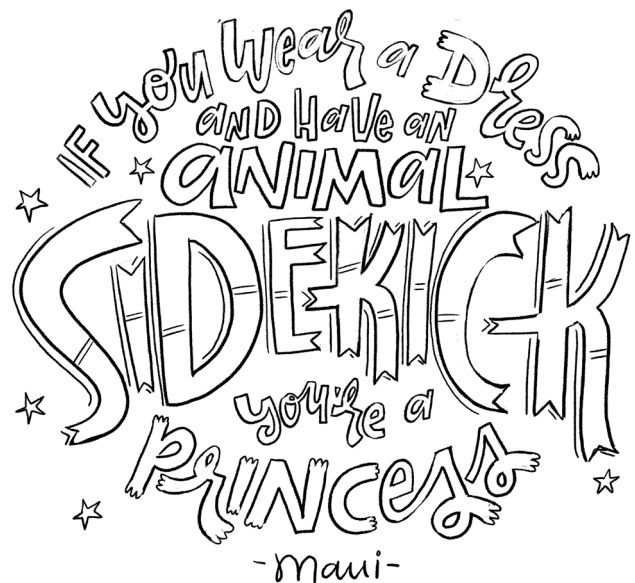 IF you Wear a Dress
aND HaVe aN
aNIMaL
SiDEKICK
you're a
PRINCess
-Maui-